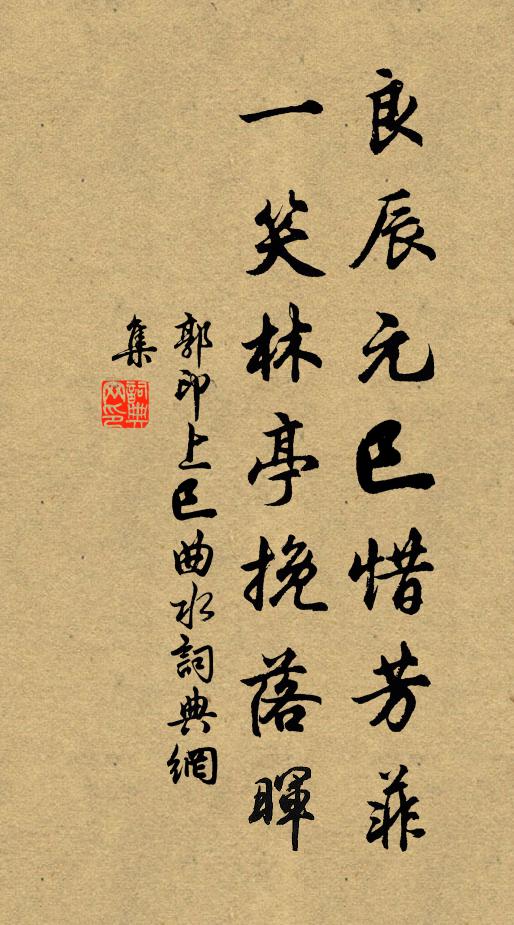 良辰元巳惜芳菲
一笑林亭挽落暉
郭印上巳曲水詞典網
集
詞典網印